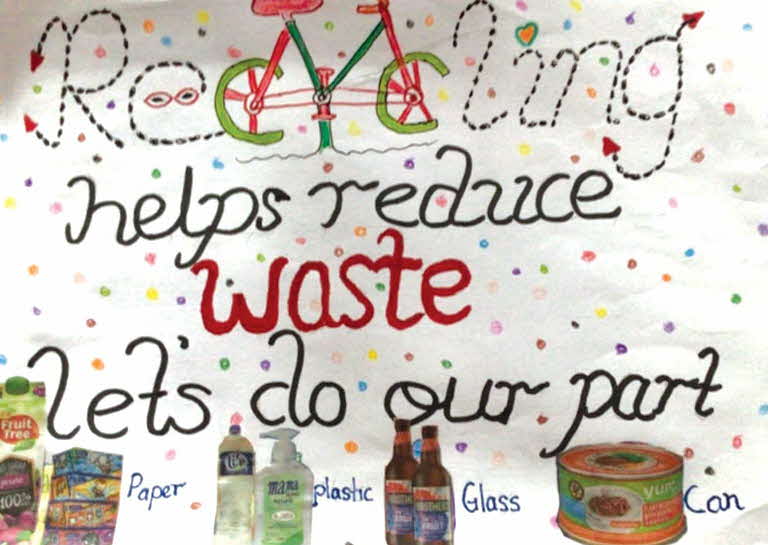 Recycling
helps reduce
waste
let's do our part
Fruit
Tree
100%
Paper
mama
plastic
Glass
yum
Can